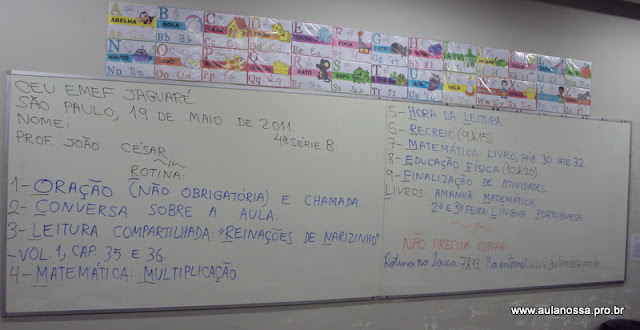 ABELHA
BOLA
CASA
FOCA
NAVIO
Nn
Oo
Pp
Qq
RATO
SAPO
VELA
CEU EMEF JAGUARÉ
SÃO PAULO, 19 DE MAIO DE 2011
NOME: 4ª SÉRIE B
PROF. JOÃO CÉSAR
ROTINA:
1- ORAÇÃO (NÃO OBRIGATÓRIA) E CHAMADA.
2- CONVERSA SOBRE A AULA.
3- LEITURA COMPARTILHADA: "REINAÇÕES DE NARIZINHO"
- VOL. 1, CAP. 35 E 36.
4- MATEMÁTICA: MULTIPLICAÇÃO
5- HORA DA LEITURA.
6- RECREIO (9h15)
7- MATEMÁTICA: LIVRO, PÁG. 30 ATÉ 32.
8- EDUCAÇÃO FÍSICA (10h20)
9- FINALIZAÇÃO DE ATIVIDADES
LIVROS: AMANHÃ: MATEMÁTICA
2ª E 3ª FEIRA LÍNGUA PORTUGUESA.
NÃO PRECISA COPIAR:
Rotina na lousa: 7h13 Na internet:
www.aulanossa.pro.br